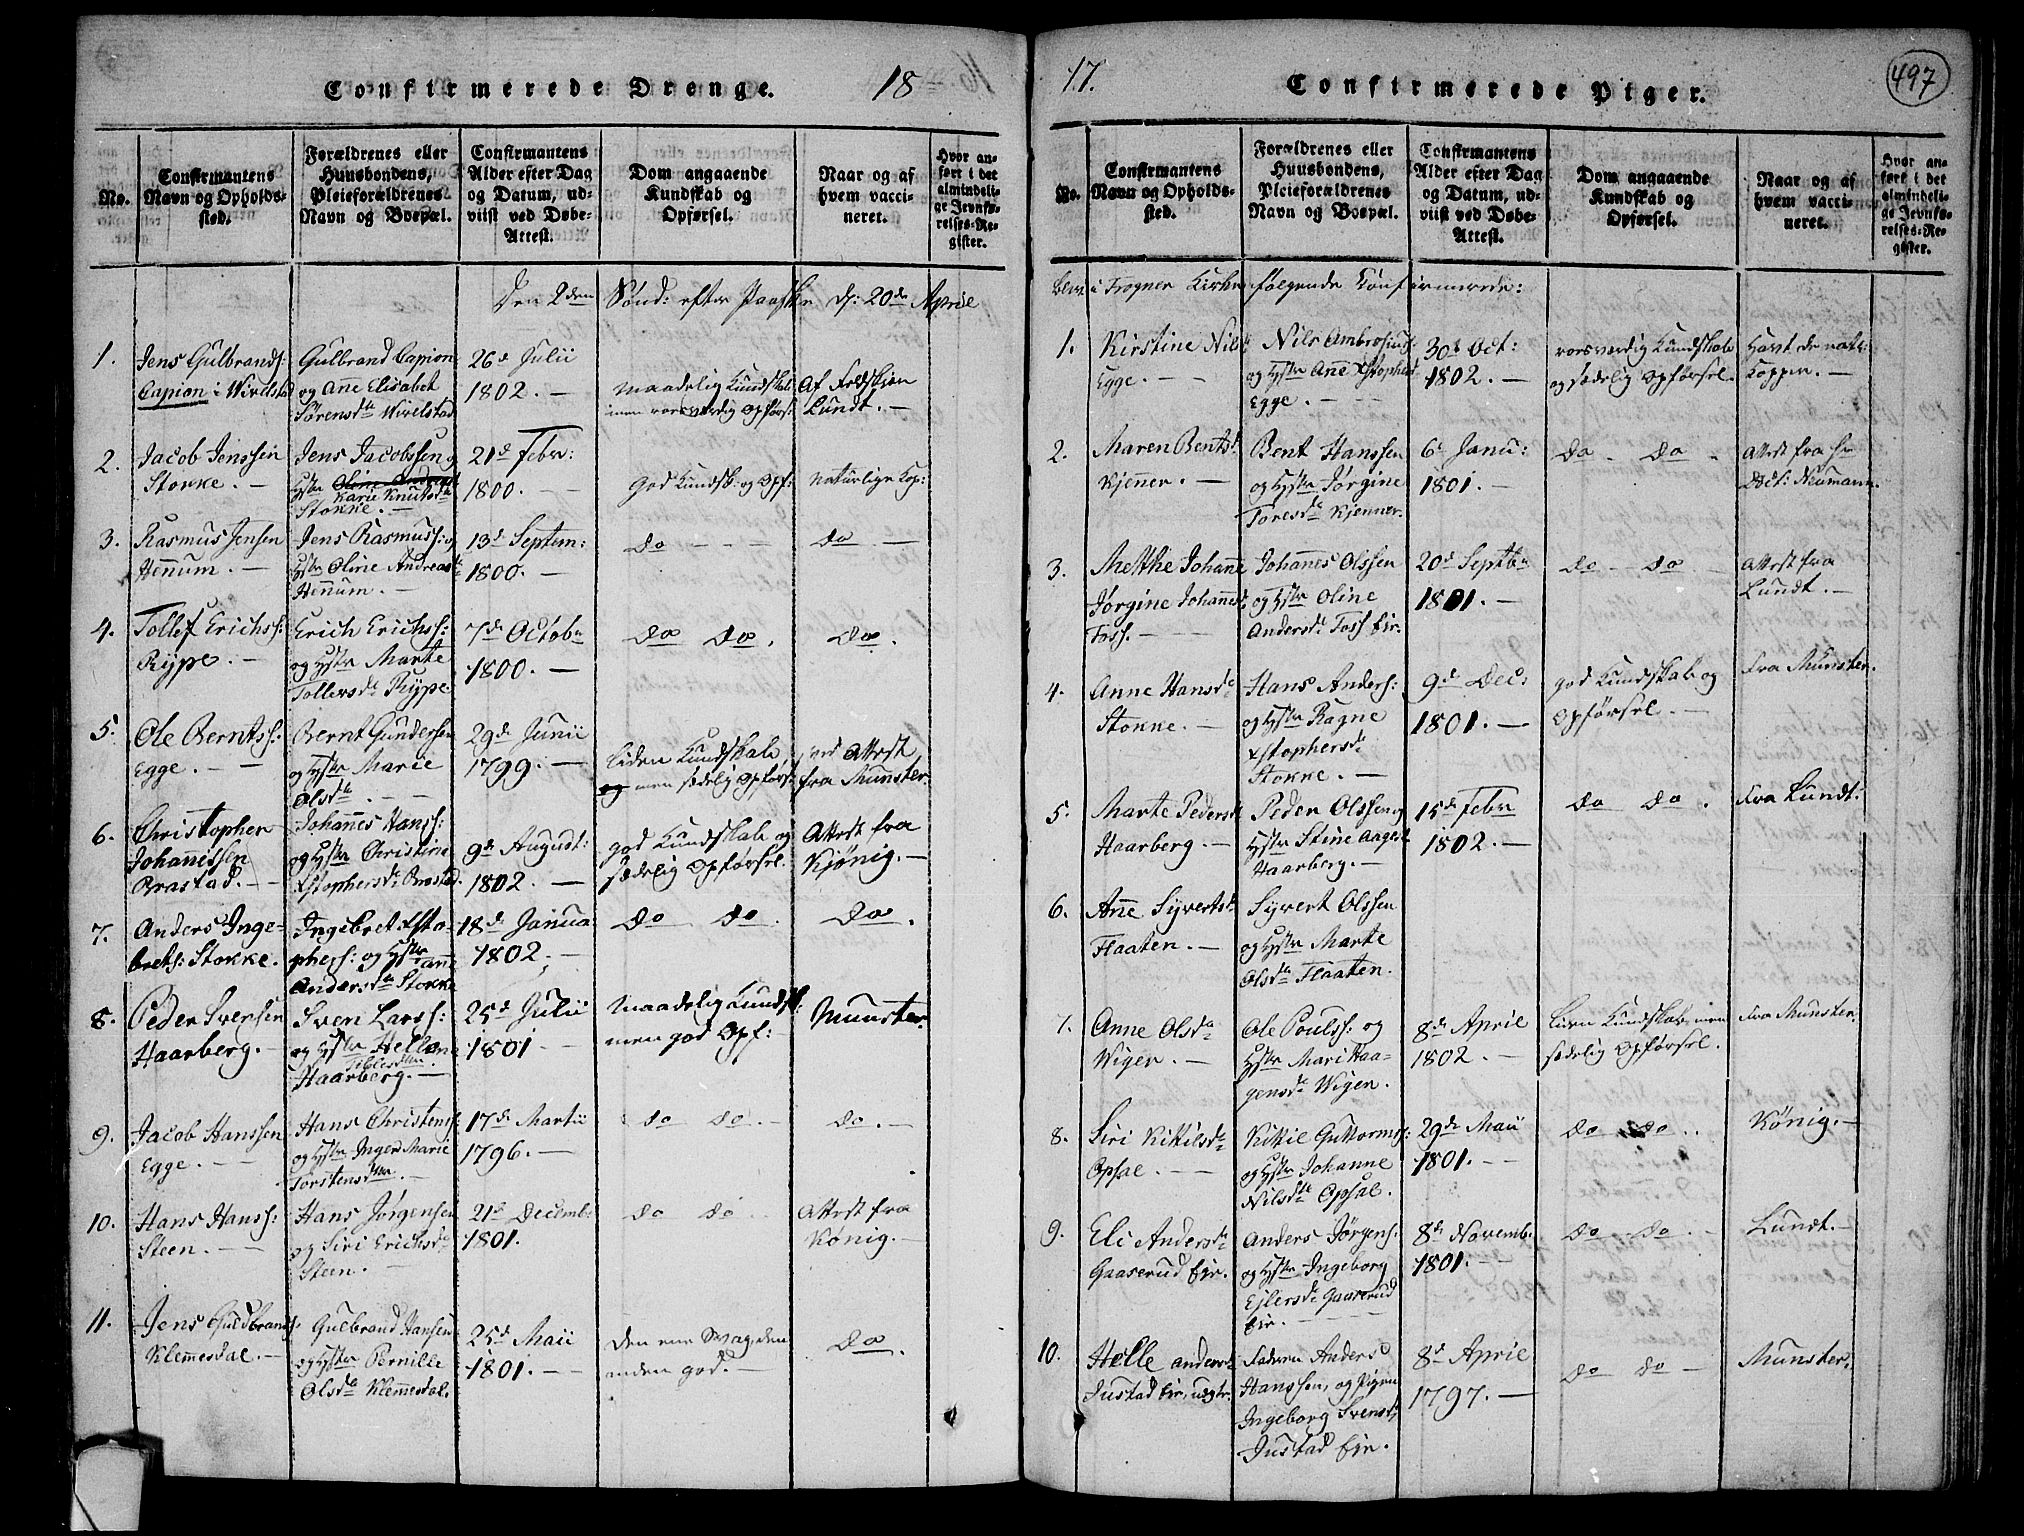 Confirmerede Drenge. 18
No.
Confirmantens
Navn og Opholds-
sted.
Forældrenes eller
Huusbondens,
Pleieforældrenes
Navn og Boepæl.
Confirmantens
Alder efter Dag
og Datum, ud-
viist ved Døbe-
Attest.
Dom angaaende
Kundskab og
Opførsel.
Naar og af
hvem vacci-
neret.
Hvor an-
ført i det
almindeli-
ge Jevnfø-
relses-Re-
gister.
Den 2den Sønd: efter Paaske d: 20de April
1.
Jens Gulbrands:
Capion i Wirelstad
Gulbrand Capion
og Ane Elisabet
Sørensda Wirelstad
26d Julii
1802. —
Maadelig Kundskab
men rosværdig Opførs:
Af Feldskjer
Lundt. —
2.
Jacob Jenssen
Stokke. —
Jens Jacobssen og
Hstr Oline Andreasd
Karie Knutsda
Stokke. —
21d Febr:
1800. —
God Kundsk: og Opf:
naturlige Kop:
3.
Rasmus Jensen
Henum. —
Jens Rasmuss: og
Hstr Oline Andreasda
Henum. —
13d Septem:
1800. —
do —
do —
4.
Tollef Erichs:
Rype. —
Erich Erichss:
og Hstr Marte
Tollersda Rype.
7d Octobr
1800. —
do do.
do.
5.
Ole Berntss:
Egge. —
Bernt Gundersen
og Hstr Marie
Olsda. —
29d Junii
1799. —
Liden Kundskab,
og men sædelig Opførs:
ved Attest
fra Munster.
6.
Christopher
Johannissen
Brastad. —
Johannes Hanss:
og Hstr Christine
Xstophersda Brastad.
9d Augudt:
1802. —
god Kundskab og
sædelig Opførsel.
Attest fra
Kjønig. —
7.
Anders Inge-
brets: Stokke.
Ingebret Xsto-
phers: og Hstr Anne
Andersda Stokke
18d Janua
1802. —
do do.
do.
8.
Peder Svensen
Haarberg. —
Sven Larss:
og Hstr Hellene
Haarberg. —
25d Julii
1801 —
Maadelig Kundsk:
men god Opf:
Munster.
9.
Jacob Hanssen
Egge. —
Hans Christens:
og Hstr Inger Marie
Torstensdtr. —
17d Martii
1796. —
do do —
do. —
10.
Hans Hanss:
Steen. —
Hans Jørgensen
og Siri Erichsda
Steen. —
21d Decemb:
1801.
do do —
Attest fra
König. —
11.
Jens Guldbrands:
Klemesdal. —
Gulbrand Hansen
og Hstr Pernille
Olsda Klemesdal.
25d Maii
1801. —
den ene svag, den
anden god. —
do.
17. Confirmerede Piger. 497
No.
Confirmantens
Navn og Opholds-
sted.
Forældrenes eller
Huusbondens,
Pleieforældrenes
Navn og Boepæl.
Confirmantens
Alder efter Dag
og Datum, ud-
viist ved Døbe-
Attest.
Dom angaaende
Kundskab og
Opførsel.
Naar og af
hvem vacci-
neret.
Hvor an-
ført i det
almindeli-
ge Jevnfø-
relses-Re-
gister.
blev i Frogner Kirke følgende Confirmerede:
1.
Kirstine Nils
Egge. —
Nils Ambrosius:
og Hstr Ane Xstophersd
Egge. —
30d Oct:
1802. —
roesværdig Kundskab
og sædelig Opførsel.
Havt de natr:
Kopper. —
2.
Maren Bentsd.
Kjener. —
Bent Hanssen
og Hstr Jørgine
Toresda Kjenner.
6d Janu:
1801. —
do — do —
Attest fra Hr
Doct: Neumann.
3.
Metthe Johanne
Jørgine Johannesd
Foss. —
Johannes Olssen
og Hstr Oline
Andersda Foss Eje.
20d Septbr
1801. —
do — do —
Attest fra
Lundt. —
4.
Anne Hansda
Stokke. —
Hans Anders:
og Hstr Ragne
Xstophersda
Stokke. —
9d Dec:
1801. —
god Kundskab og
Opførsel. —
Fra Munster.
5.
Marte Pedersd
Haarberg. —
Peder Olssen og
Hstr Stine Aagesd
Haarberg. —
15d Febr
1802. —
do do.
Fra Lundt.
6.
Ane Syvertsd
Flaaten. —
Syvert Olssen
og Hstr Marte
Olsda Flaaten.
7.
Anne Olsda
Wiger. —
Ole Pouls: og
Hstr Mari Haa-
gensda Wigen.
8d April
1802. —
Liden Kundskab, men
sædelig Opførsel.
Fra Munster.
8.
Siri Kittilsda
Opsal. —
Kittil Guttorms:
og Hstr Johanne
Nilsda Opsal.
29d Maii
1801. —
do do.
König. —
9.
Eli Andersda
Gaaserud Eje.
Anders Jørgens:
og Hstr Ingeborg
Ejlersda Gaaserud
Eje. —
8d Novemb.
1801. —
do do. —
Lundt. —
10.
Helle Andersd
Justad Eje, uægte.
Faderen Anders
Hanssen, og Pigen
Ingeborg Svensd,
Justad Eje.
8d April
1797. —
do do —
Munster.